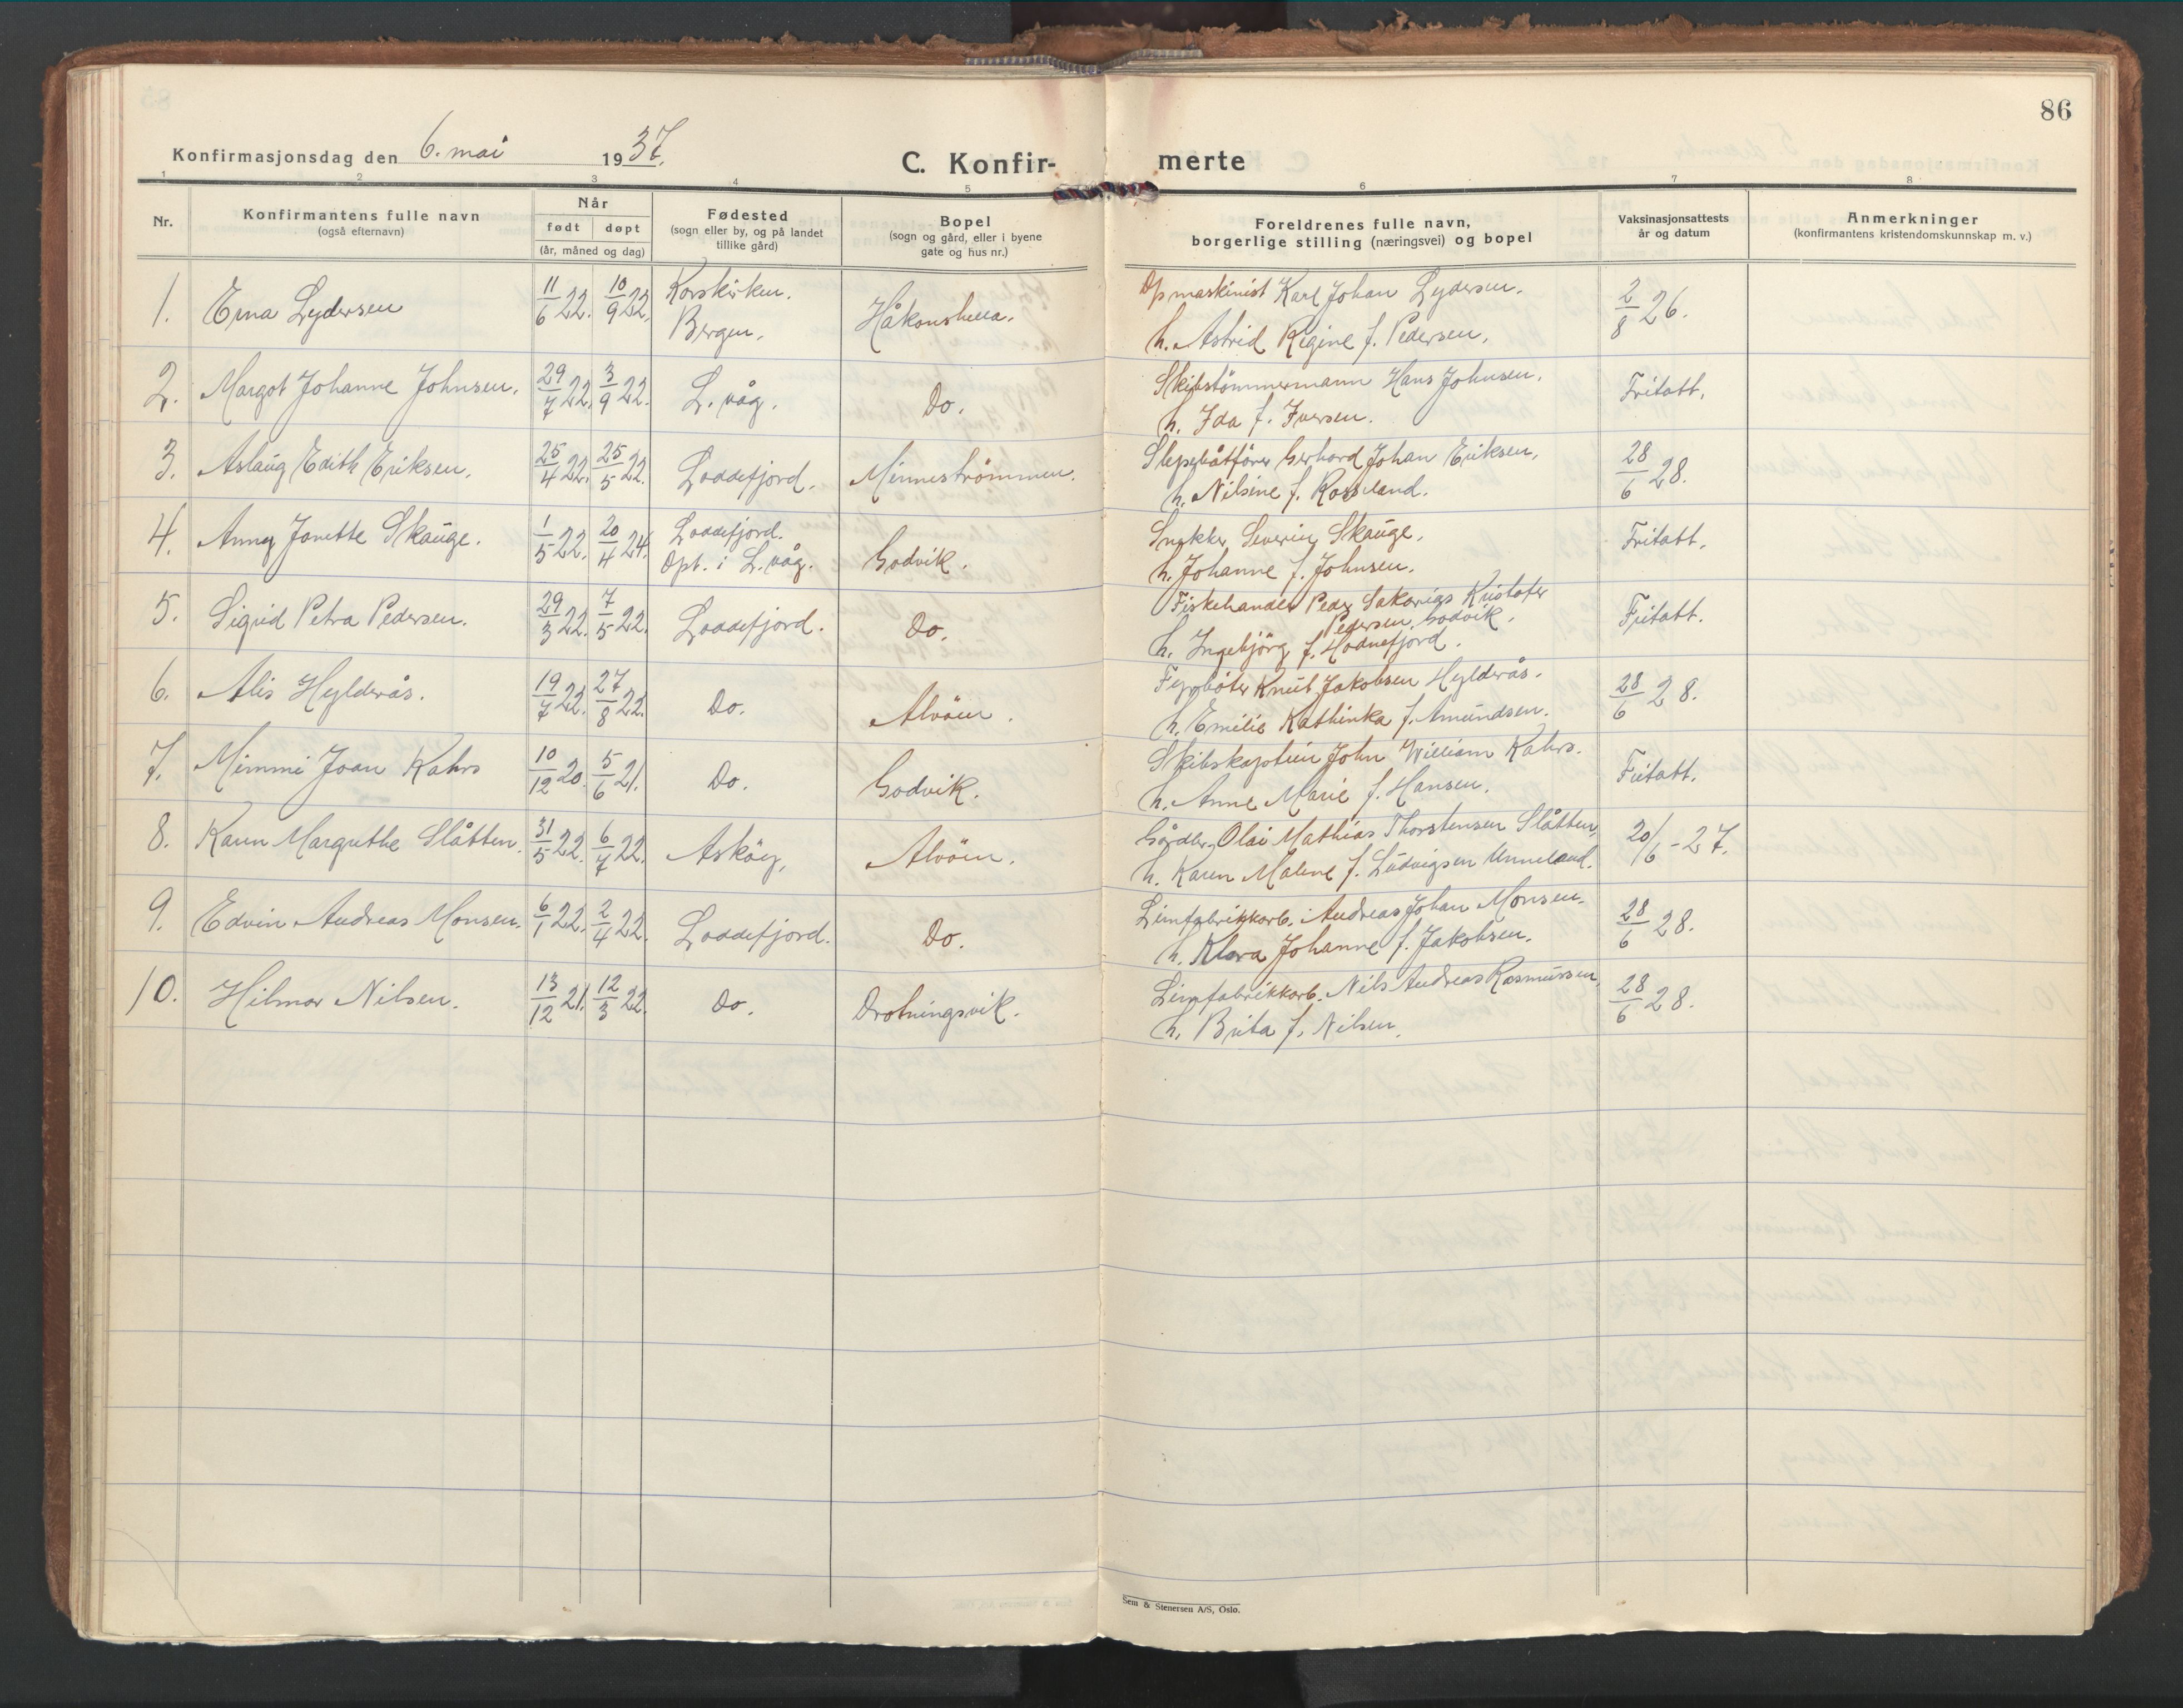 86
Konfirmasjonsdag den 6. mai 1937.
C. Konfir-
merte
1 2 3 4 5 6 7 8
Nr.
Konfirmantens fulle navn
(også efternavn)
Når
født døpt
(år, måned og dag)
Fødested
(sogn eller by, og på landet
tillike gård)
Bopel
(sogn og gård, eller i byene
gate og hus nr.)
Foreldrenes fulle navn,
borgerlige stilling (næringsvei) og bopel
Vaksinasjonsattests
år og datum
Anmerkninger
(konfirmantens kristendomskunnskap m. v.)
1. Erna Lydersen 11/6 22. 10/9 22. Korskirken. Bergen. Håkonshella. Dpmaskinist Karl Johan Lydersen. 2/8 26.
h. Astrid Regine f. Pedersen.
2. Margot Johanne Johnsen. 29/7 22. 3/9 22. L. våg. Do. Skibstömmermann Hans Johnsen. Fritatt.
h. Ida f. Iversen.
3. Aslaug Edith Eriksen. 25/4 22. 25/5 22. Loddefjord. Minneströmmen. Slepebåtförer Gerhard Johan Eriksen. 28/6 28.
h. Nilsine f. Rossland.
4. Anny Janette Skauge. 1/5 22. 20/4 24. Loddefjord. Döpt. i L. våg. Godvik. Snekker Severin Skauge. Fritatt.
h. Johanne f. Johnsen.
5. Sigrid Petra Pedersen. 29/3 22. 7/5 22. Loddefjord. Do. Fiskehandler Peder Sakarias Kristofer Fritatt.
Pedersen, Godvik.
h. Ingebjörg f. Hodnefjord.
6. Alis Hylderås. 19/7 22. 27/8 22. Do. Alvöen. Knut Jakobsen Hylderås. 28/6 28.
h. Emilie Kathinka f. Amundsen.
7. Mimmi Joan Kahrs 10/12 20. 5/6 21. Do. Godvik. Skibskaptein John William Kahrs. Fritatt.
h. Anne Marie f. Hansen.
8. Karen Margrethe Slåtten. 31/5 22. 6/7 22. Asköy. Alvöen. Gårdbr. Olai Mathias Thorstensen Slåtten, 20/6 - 27.
h. Karen Malene f. Ludvigsen Unneland.
9. Edvin Andreas Monsen. 6/1 22. 2/4 22. Loddefjord. Do. Limfabrikkarb. Andreas Johan Monsen. 28/6 28.
h. Klara Johanne f. Jakobsen.
10. Hilmar Nilsen. 13/12 21. 12/3 22. Do. Drotningsvik. Limfabrikkarb. Nils Andreas Rasmussen, 28/6 28.
h. Brita f. Nilsen.
Sem & Stenersen A/S, Oslo.